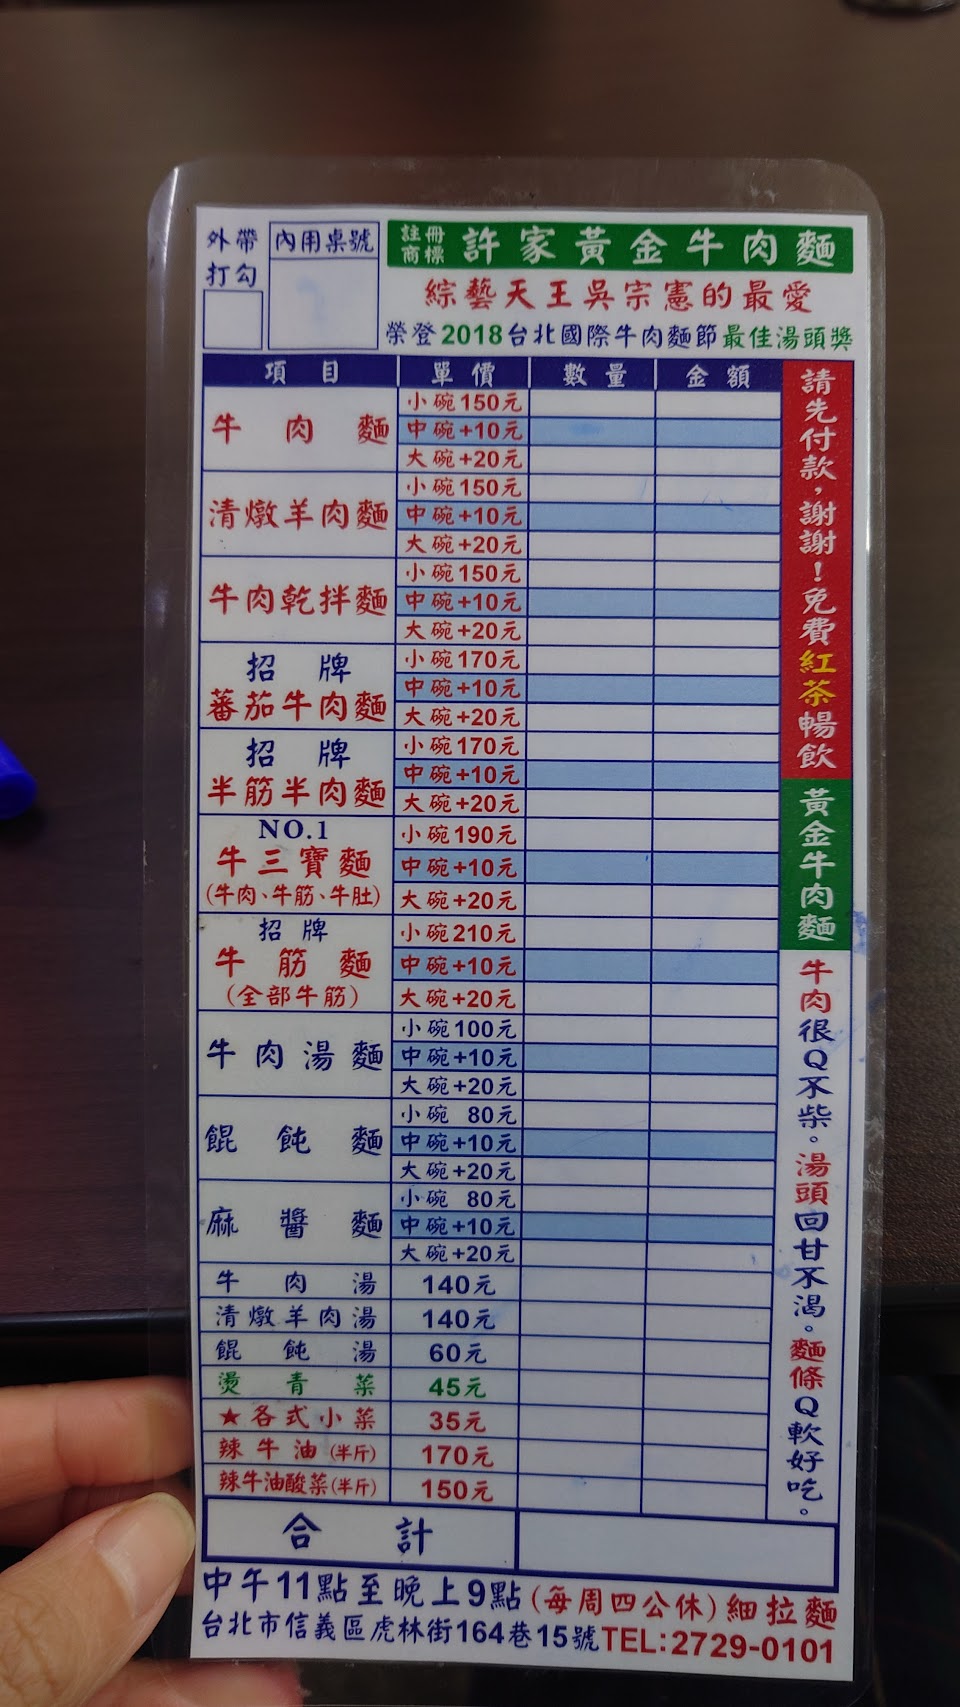 外帶
打勾
內用桌號
註冊
商標
許家黃金牛肉麵
綜藝天王吳宗憲的最愛
榮登2018台北國際牛肉麵節最佳湯頭獎
項目 單價 數量 金額
牛肉麵
小碗150元
中碗+10元
大碗+20元
清燉羊肉麵
小碗150元
中碗+10元
大碗+20元
牛肉乾拌麵
小碗150元
中碗+10元
大碗+20元
招牌
蕃茄牛肉麵
小碗170元
中碗+10元
大碗+20元
招牌
半筋半肉麵
小碗170元
中碗+10元
大碗+20元
NO.1
牛三寶麵
(牛肉、牛筋、牛肚)
小碗190元
中碗+10元
大碗+20元
招牌
牛筋麵
(全部牛筋)
小碗210元
中碗+10元
大碗+20元
牛肉湯麵
小碗100元
中碗+10元
大碗+20元
餛飩麵
小碗 80元
中碗+10元
大碗+20元
麻醬麵
小碗 80元
中碗+10元
大碗+20元
牛肉湯 140元
清燉羊肉湯 140元
餛飩湯 60元
燙青菜 45元
★各式小菜 35元
辣牛油(半斤) 170元
辣牛油酸菜(半斤) 150元
合計
請先付款，謝謝！免費紅茶暢飲
黃金牛肉麵
牛肉很Q不柴。湯頭回甘不渴。麵條Q軟好吃。
中午11點至晚上9點(每周四公休)細拉麵
台北市信義區虎林街164巷15號TEL:2729-0101